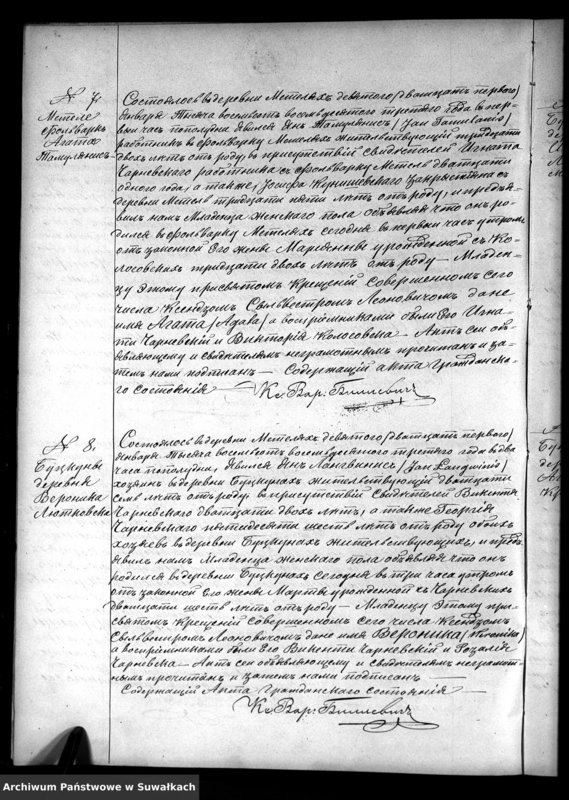 № 7,
Метеле
фольваркъ
Агата
Тамулянисъ
Состоялось въ деревни Метеляхъ девятого /двадцать первого/
Января тысяча восемьсотъ восемьдесятъ третяго года въ пер-
вый часъ пополудни явился Янъ Тамулянисъ /Jan Tamulanis/
работникъ въ фольварку Метеляхъ жительствующій тридцати
двохъ лѣтъ отъ роду, въ присутствіи свидѣтелей Игната
Чарневского работника съ фольварку Метель двадцати
одного года, а также, Іосифа
деревни Метель тридцати пяти лѣтъ отъ роду, и предъя-
вилъ намъ Младенца женского пола объявляя что онъ ро-
дился въ фольварку Метеляхъ сегодня въ первый часъ утромъ
отъ законной Его жены Маріянны урожденной съ Ко-
лосовскихъ тридцати двохъ лѣтъ отъ роду — Младен-
цу этому при святомъ Крещеніи совершенномъ сего
числа Ксендзомъ Сыльвестромъ Леоновичомъ дано
имя Агата /Agata/ а воспріемниками были Его Игна-
тій Чарневскій и Викторія Колосовска. — Актъ сей объ
являющему и свидѣтелямъ неграмотнымъ прочитанъ и за-
темъ нами подписанъ — Содержащій акта Гражданска-
го состоянія —
Кс. Вар: Билевичъ
№ 8,
Буцкуны
деревня
Вероника
Состоялось въ деревни Метеляхъ девятого /двадцать первого/
Января тысяча восемьсотъ восемьдесятъ третяго года въ два
часа пополудни, явился Янъ Лангвинисъ /Jan Langwinis/
хозяинъ въ деревни Буцкунахъ жительствующій двадцати
семь лѣтъ отъ роду, въ присутствіи Свидѣтелей Викентія
Чарневского двадцати двохъ лѣтъ, а также Георгія
Чарневского пятидесяти шесть лѣтъ отъ роду обоихъ
хозяевъ въ деревни Буцкунахъ жительствующихъ, и предъ
явилъ намъ Младенца женского пола объявляя что онъ
родился въ деревни Буцкунахъ сегодня въ три часа утромъ
отъ законной Его жены Марты урожденной съ Чарневскихъ
двадцати шесть лѣтъ отъ роду — Младенцу этому при
святомъ Крещеніи совершенномъ сего числа Ксендзомъ
Сыльвестромъ Леоновичомъ дано имя Вероника /Weronika/
а воспріемниками были Его Викентій Чарневскій и Розалія
Чарневска — Актъ сей объявляющему и свидѣтелямъ неграмот-
нымъ прочитанъ и затемъ нами подписанъ —
Содержащій Акта Гражданского состоянія —
Кс. Вар: Билевичъ
Archiwum Państwowe w Suwałkach